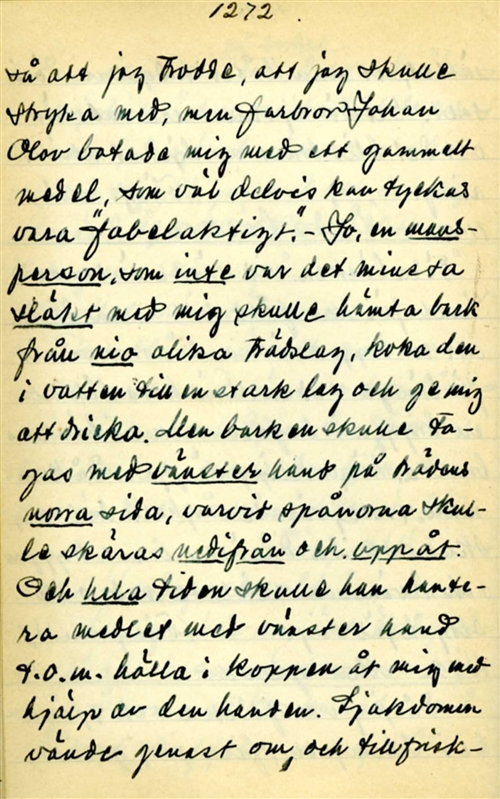 1272.
så att jag trodde, att jag skulle
stryka med, men farbror Johan
Olov botade mig med ett gammalt
medel, som väl delvis kan tyckas
vara "fabelaktigt." – Jo, en mans-
person, som inte var det minsta
släkt med mig skulle hämta bark
från nio olika trädslag, koka den
i vatten till en stark lag och ge mig
att dricka. Men barken skulle ta-
gas med vänster hand på trädens
norra sida, varvid spånorna skul-
le skäras nedifrån och uppåt.
Och hela tiden skulle han hante-
ra medlet med vänster hand
t.o.m. hålla i koppen åt mig med
hjälp av den handen. Sjukdomen
vände genast om, och tillfrisk-